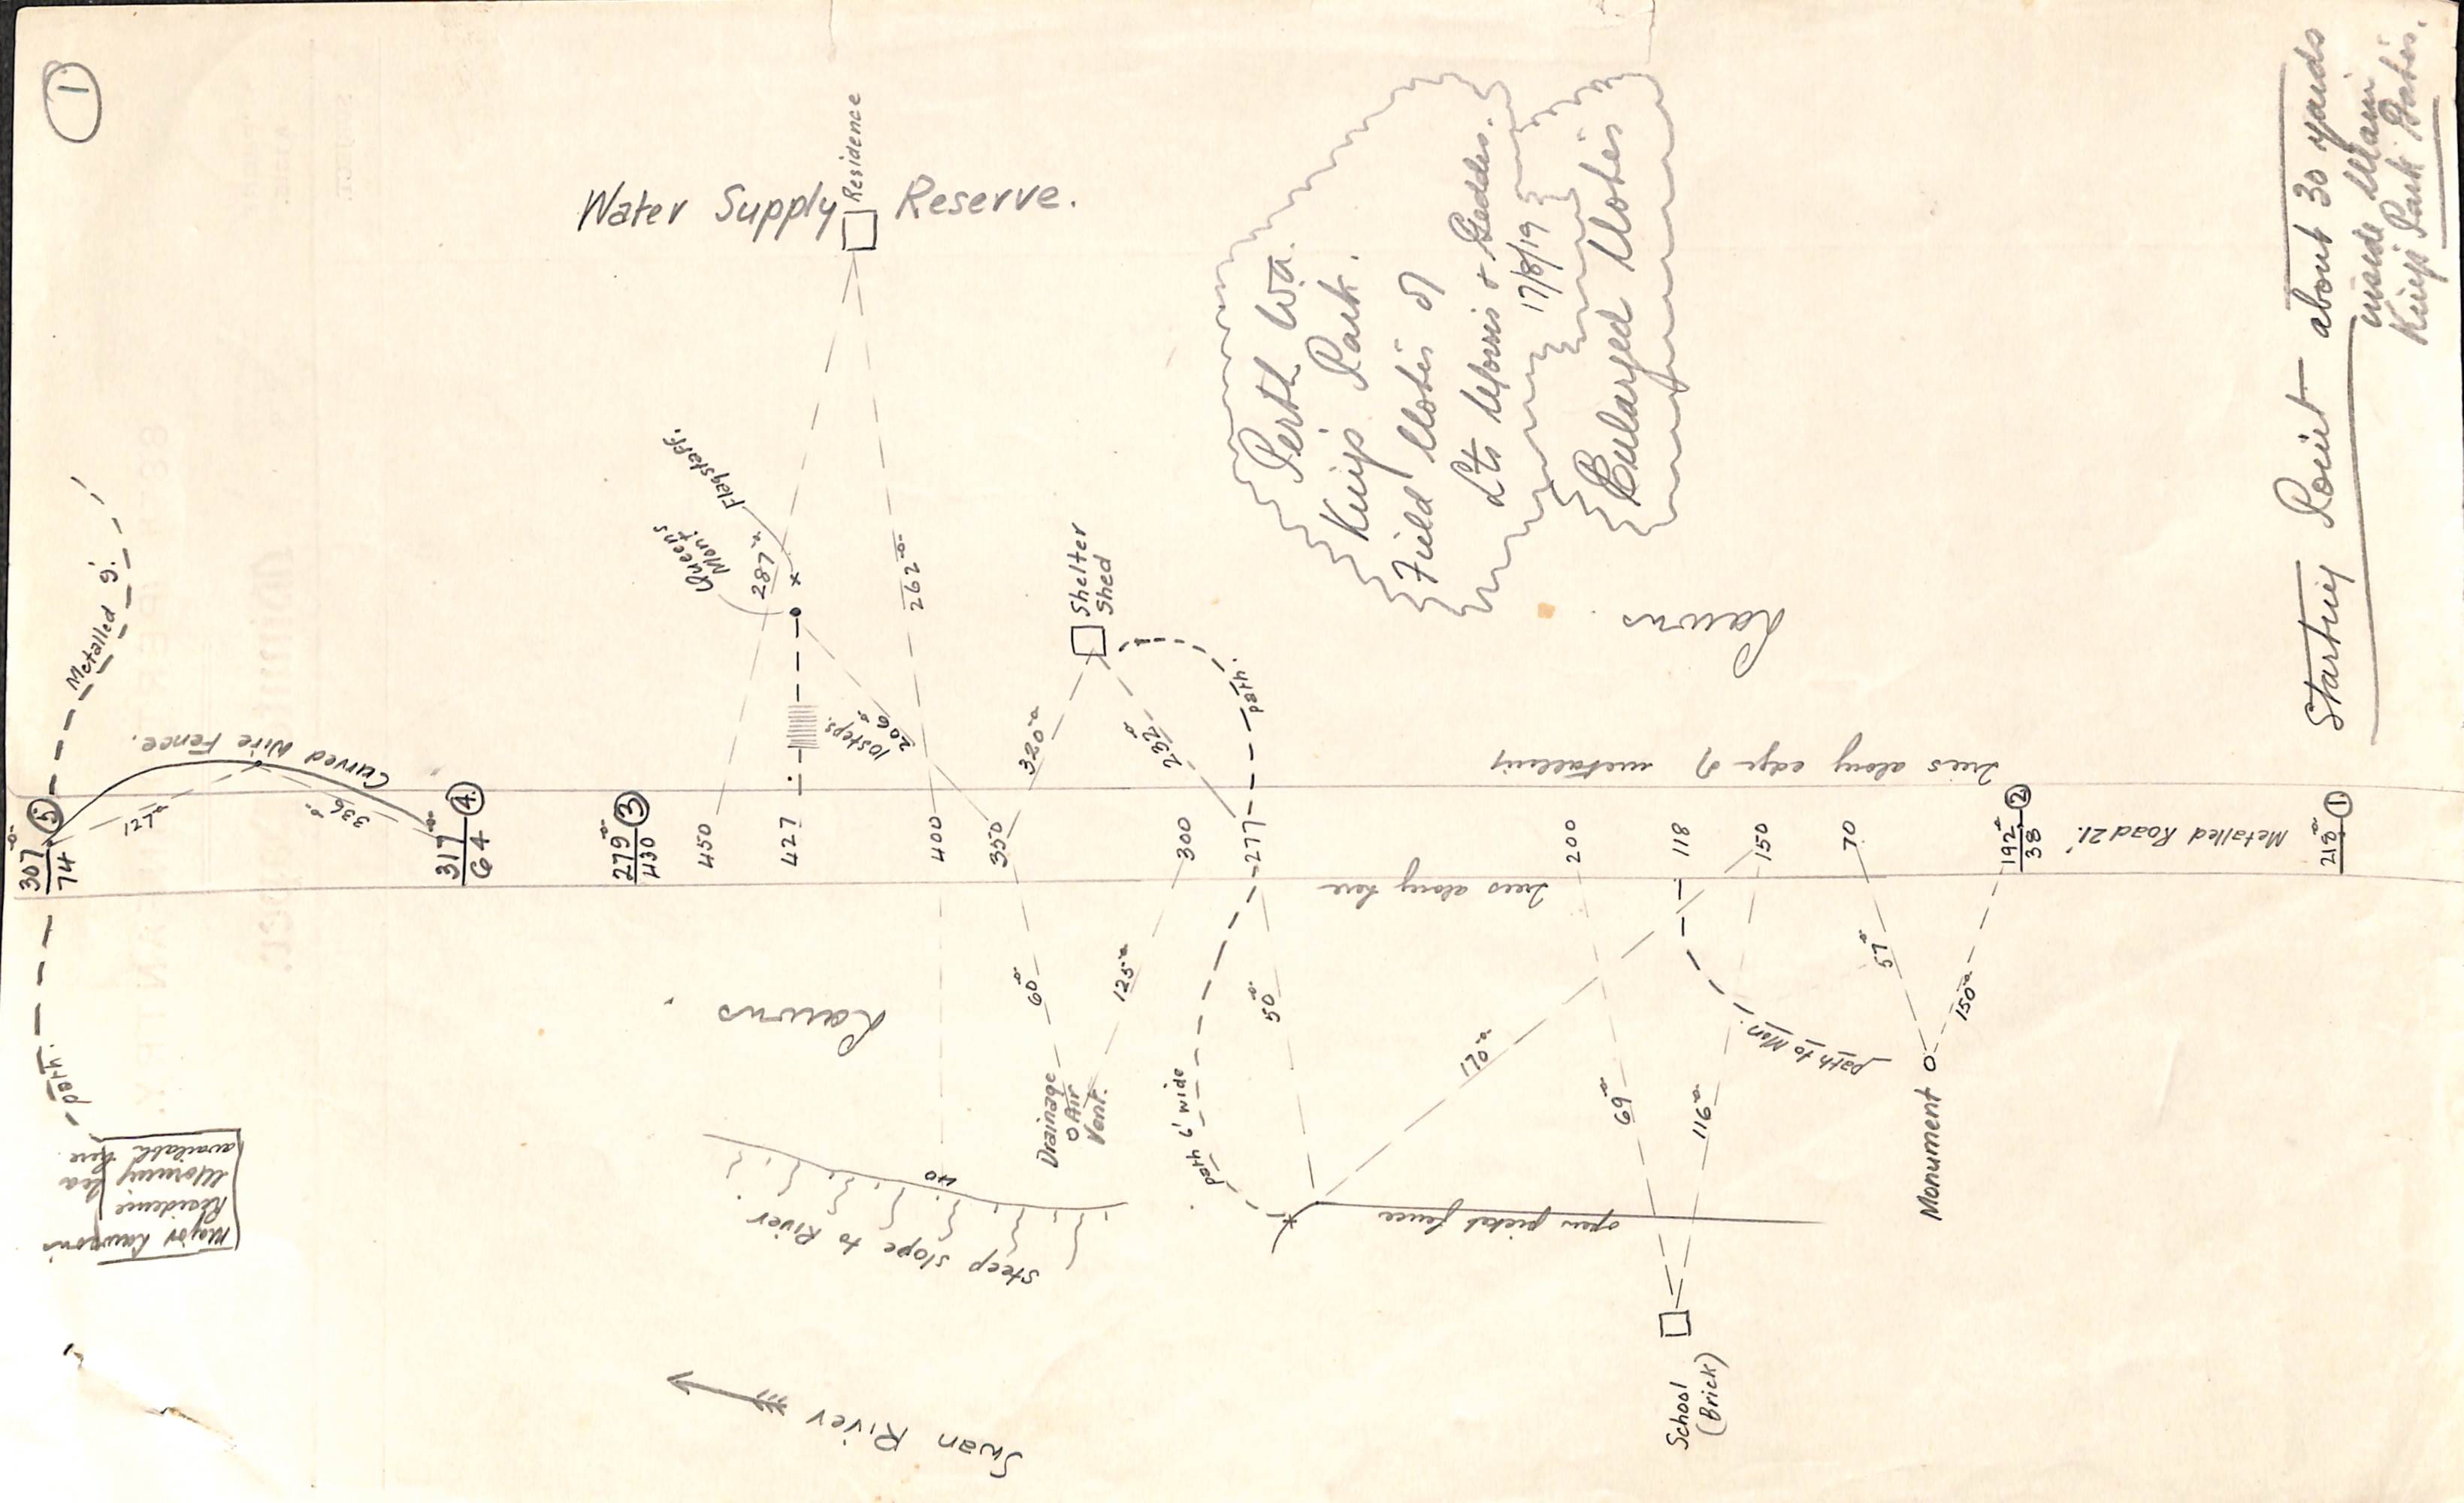 1
Water Supply Reserve.
Residence
Perth Wa.
King's Park.
Field Notes of
Lts Morris + Geddes.
17/8/19
Enlarged Notes
Starting Point about 30 yards
inside Main
King's Park Gates.
Metalled 9'.
Curved Wire Fence.
127°
336°
Queens
Mont
Flagstaff.
287°
262°
10 steps.
206°
Shelter
Shed
320°
232°
path.
Lawns
Trees along edge of metalling
307°
74
5
317°
64
4
279°
430
3
450
427
400
350
300
277
200
118
150
70
192°
38
2
Metalled Road 21'.
218°
1
Trees along here
path.
Major Lawson's
Residence
Morning tea
available here
Lawns
60°
125°
50°
Drainage
Air
Vent.
path 6' wide
40
Steep slope to River
170°
69°
116°
path to Mon.
57°
150°
Monument
open picket fence
School
(Brick)
Swan River